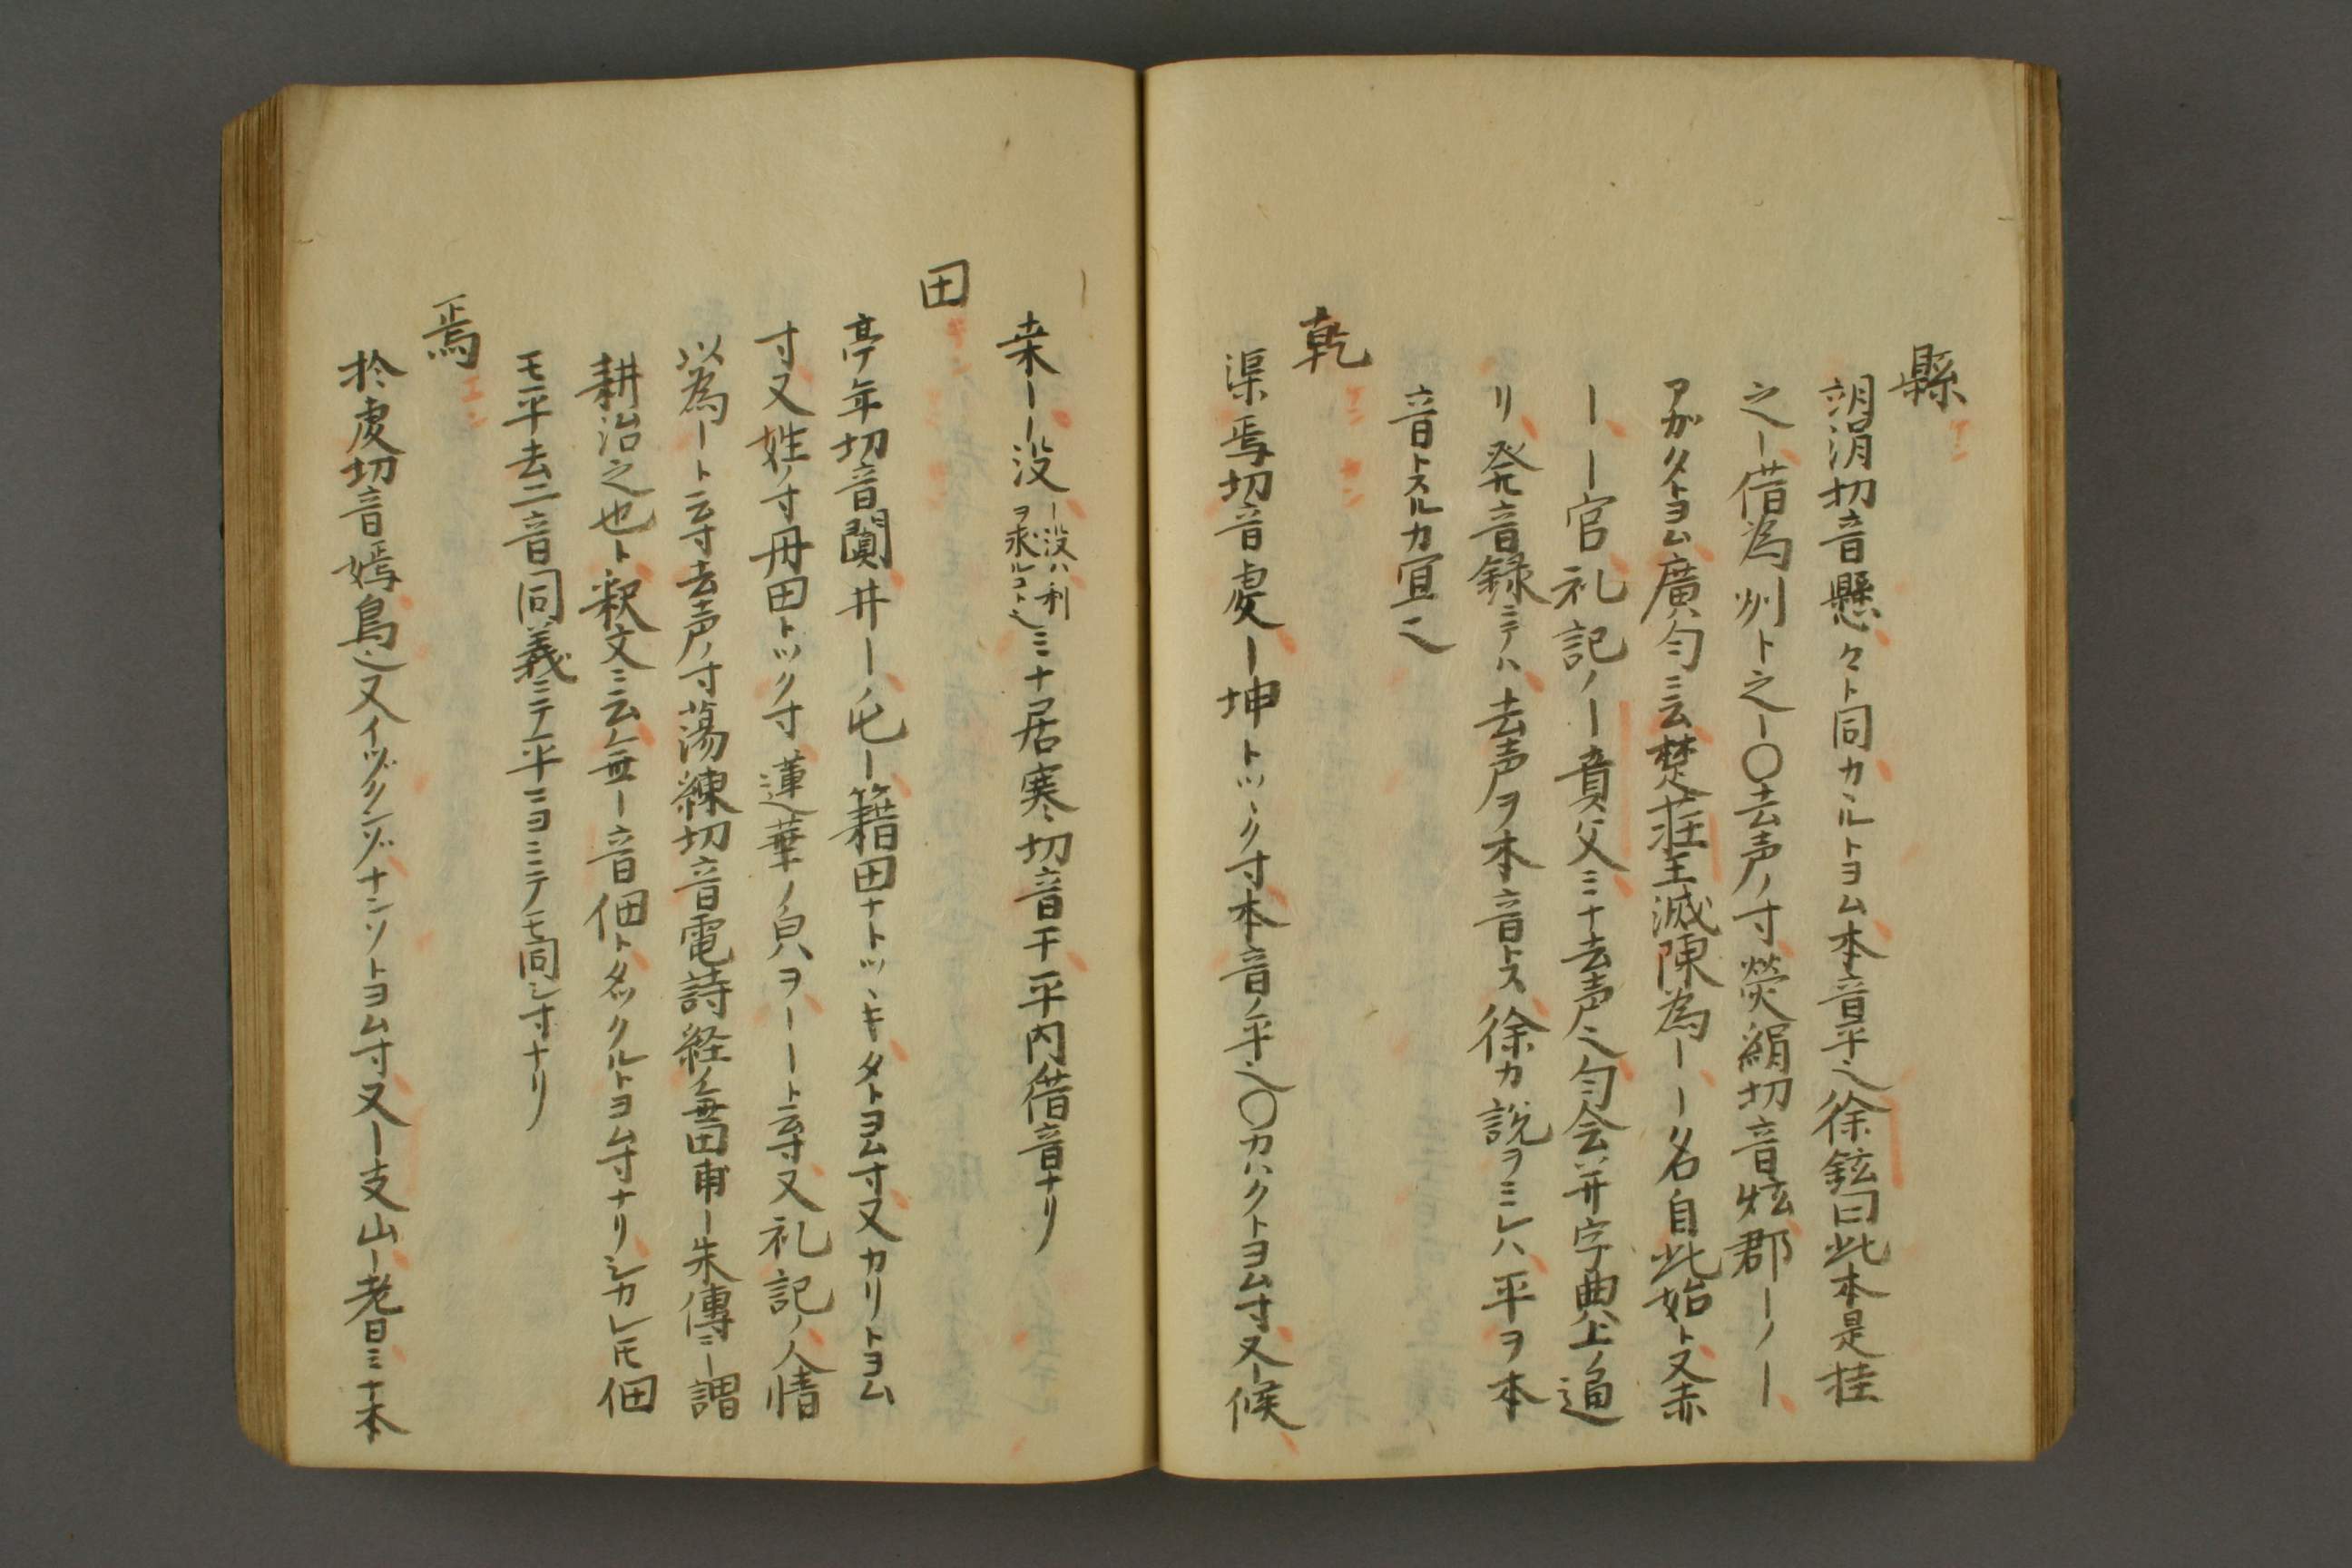 縣 ケン
胡涓切音懸々ト同カルトヨム本音平也徐鉉曰此本是挂
之ー借為州ト之ー〇去声ノ寸熒絹切音炫郡ーノー
アガタトヨム廣匀ニ云楚荘王滅陳為ーー名自此始ト又赤
ーー官礼記ノー賁父ミナ去声也匀会并字典上ノ通
リ発音録ニテハ去声ヲ本音トス徐カ説ヲミレハ平ヲ本
音トスルカ宜也
乾 ケン カン
渠焉切音虔ー坤トツヽク寸本音ノ平也〇カハクトヨム寸又ー餱
桒ーー没ー没ハ利ヲ求ルコト也ミナ居寒切音干平内借音ナリ
田 テン
亭年切音闐井ーノ屯ー籍田ナトツヽキタトヨム寸又カリトヨム
寸又姓ノ寸丹田トツヽク寸蓮華ノ皃ヲーート云寸又礼記ノ人情
以為ート云寸去声ノ寸蕩練切音電詩経無田甫ー朱傳ニー謂
耕治之也ト釈文ニ云無ー音佃トタツクルトヨム寸ナリシカレ𪜈佃
モ平去二音同義ニテ平ニヨミテモ同シ寸ナリ
焉 エン
於虔切音嫣鳥也又イヅクンゾナンソトヨム寸又ー支山ー耆曰ミナ本